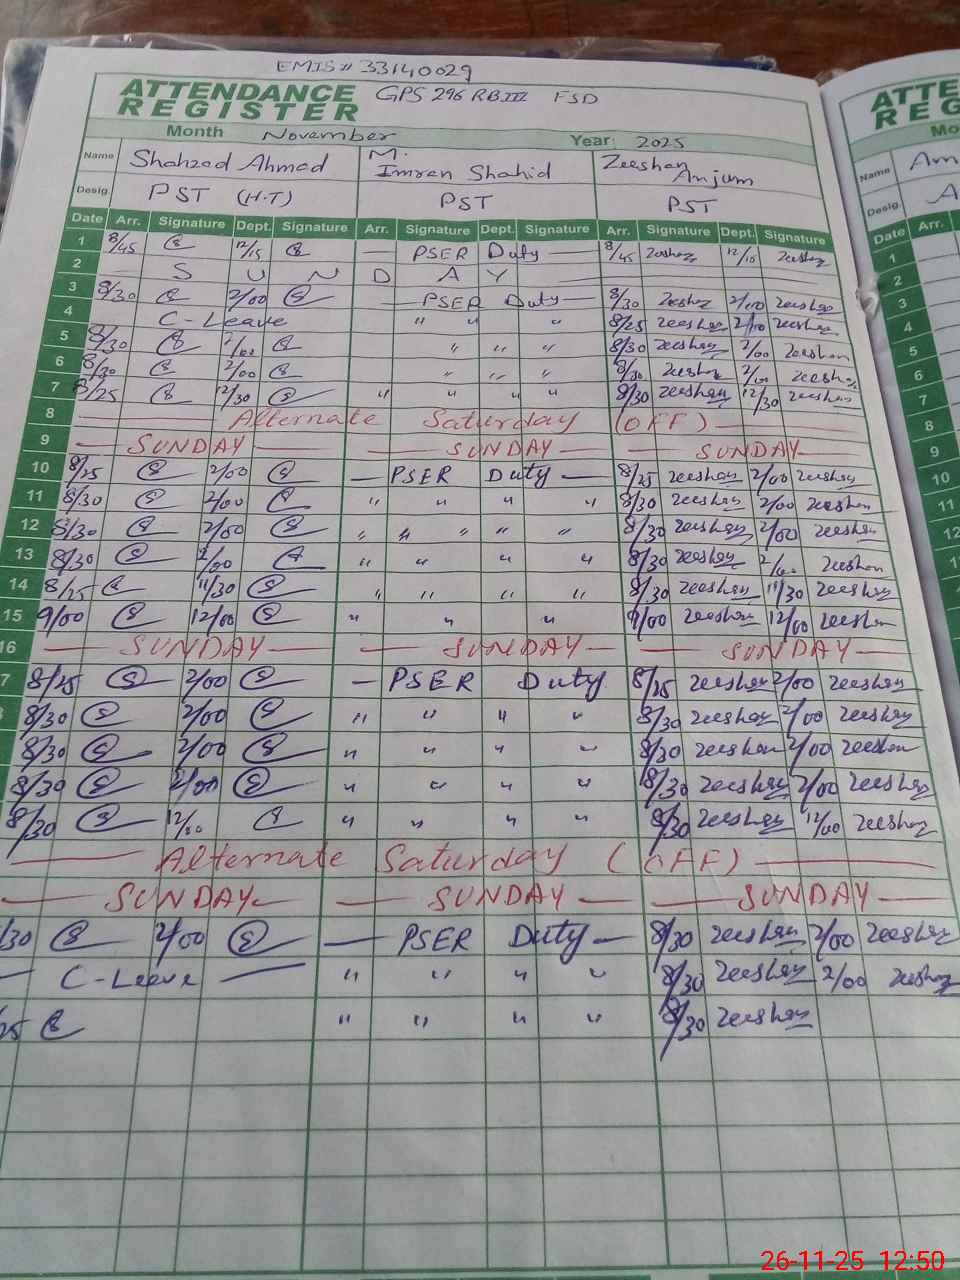 EMIS# 33140029
ATTENDANCE REGISTER GPS 296 RB III FSD
Month November Year: 2025
Name Shahzad Ahmad M. Imran Shahid Zeeshan Anjum
Desig. PST (H.T) PST PST
Date Arr. Signature Dept. Signature Arr. Signature Dept. Signature Arr. Signature Dept. Signature
1 8/45 12/15 — PSER Duty — 8/45 zeeshan 12/10 zeeshan
2 — S U N D A Y —
3 8/30 2/00 — PSER Duty — 8/30 zeeshan 2/00 zeeshan
4 C-Leave " " " 8/25 zeeshan 2/00 zeeshan
5 8/30 2/00 " " " 8/30 zeeshan 2/00 zeeshan
6 8/30 2/00 " " " 8/30 zeeshan 2/00 zeeshan
7 8/25 12/30 " " " " 8/30 zeeshan 12/30 zeeshan
8 — Alternate Saturday (OFF) —
9 — SUNDAY — — SUNDAY — — SUNDAY —
10 8/25 2/00 — PSER Duty — 8/25 zeeshan 2/00 zeeshan
11 8/30 2/00 " " " " 8/30 zeeshan 2/00 zeeshan
12 8/30 2/00 " " " " " 8/30 zeeshan 2/00 zeeshan
13 8/30 2/00 " " " " 8/30 zeeshan 2/00 zeeshan
14 8/25 11/30 " " " " 8/30 zeeshan 11/30 zeeshan
15 9/00 12/00 " " " 9/00 zeeshan 12/00 zeeshan
16 — SUNDAY — — SUNDAY — — SUNDAY —
7 8/25 2/00 — PSER Duty 8/25 zeeshan 2/00 zeeshan
8/30 2/00 " " " " 8/30 zeeshan 2/00 zeeshan
8/30 2/00 " " " " 8/30 zeeshan 2/00 zeeshan
8/30 2/00 " " " " 8/30 zeeshan 2/00 zeeshan
8/30 12/00 " " " " 8/30 zeeshan 12/00 zeeshan
— Alternate Saturday (OFF) —
— SUNDAY — — SUNDAY — — SUNDAY —
/30 2/00 — PSER Duty — 8/30 zeeshan 2/00 zeeshan
— C-Leave — " " " " 8/30 zeeshan 2/00 zeeshan
25 " " " " 8/30 zeeshan
ATTE
REG
Mo
Name Am
Desig. A
Date Arr.
1
2
3
4
5
6
7
8
9
10
11
12
13
14
15
26-11-25 12:50